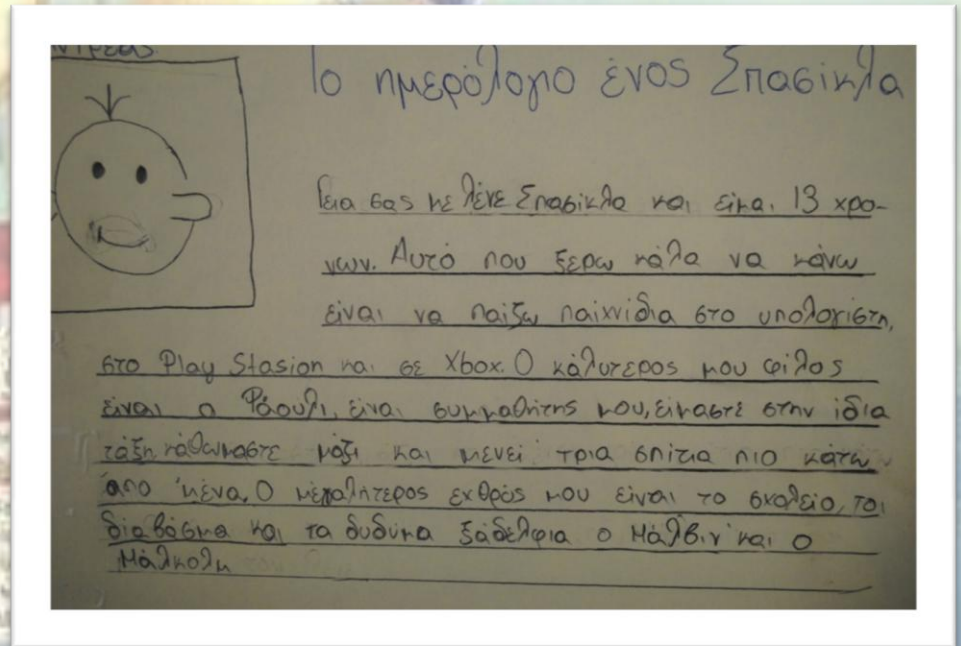 Το ημερόλογιο ένος Σπασίκλα
Γεια σας με λένε Σπασίκλα και είμαι 13 χρο-
νων. Αυτό που ξερω κάλα να κάνω
είναι να παίξω παιχνίδια στο υπολογίστη,
στο Play Stasion και σε Xbox. Ο κάλυτερος μου φίλος
είναι ο Ράουλι, είναι συμμαθήτης μου, είμαστε στην ίδια
τάξη, κάθωμαστε μάζι και μένει τρια σπίτια πιο κάτω
απο 'μένα. Ο μέγαλήτερος εχθρός μου είναι το σχολείο, το
διαβάσμα και τα δυδύμα ξάδελφια ο Μάλβιν και ο
Μάλκολμ